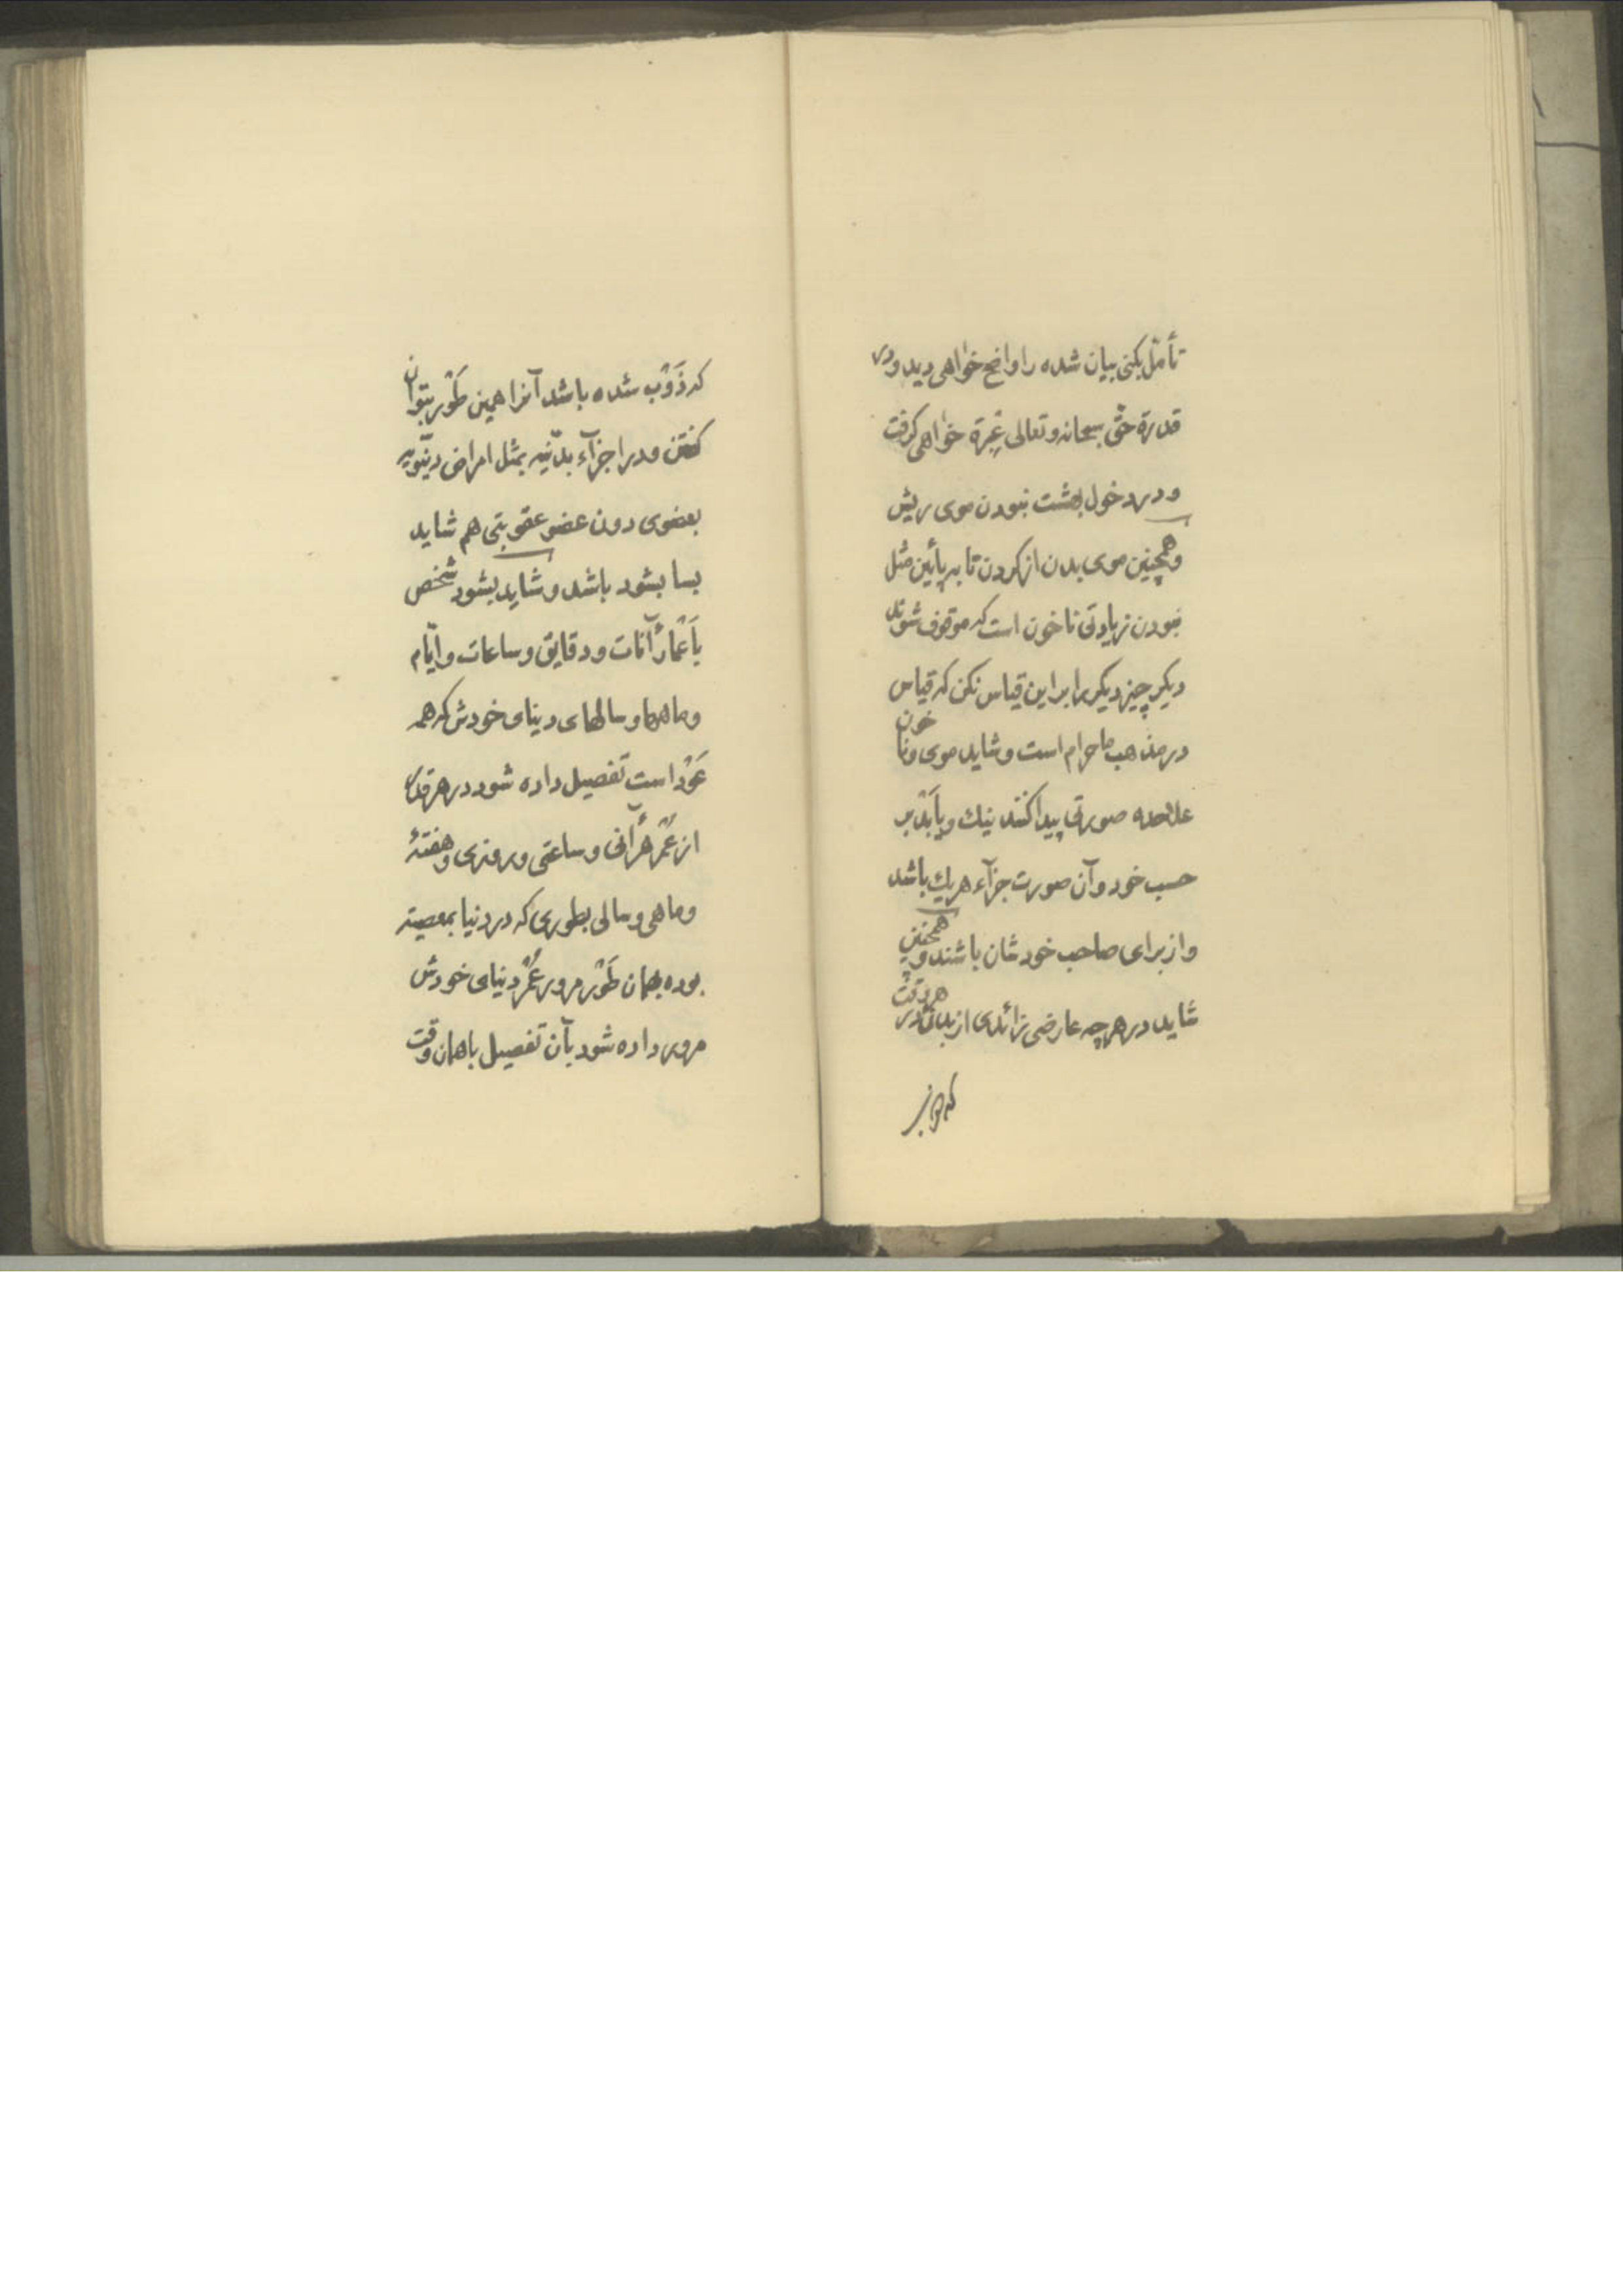 تأمّل بكنی بیان شده را واضح خواهی دید و در
قدرة حقّ سبحانه و تعالی عِبرة خواهی كرفت
و در دخول بهشت نبودن موی ریش
و همچنین موی بدن از كردن تا به پائین مثل
نبودن زیادتی ناخون است كه موقوف شوند
دیكر چیز دیكر را بر این قیاس نكن كه قیاس
در مذهب ما حرام است و شاید موی و ناخون
علاحده صورتی پیدا كنند نیك و یا بَد بر
حسب خود و آن صورت جزآء هر یك باشد
و از برای صاحب خودشان باشند و همچنین
شاید در هر چه عارضی زائدی از بدن در هر وقت
كه ذَوْب شده باشد آنرا همین طَوْر بتوان
كفتن و در اجزآء بدنیّه بمثل امراض دنیویّه
بعضوی دون عضو عقوبتی هم شاید
بسا بشود باشد و شاید بشود شخص
باَعْمار آنات و دقایق و ساعات و ایّام
و ماهها و سالهای دنیای خودش كه همه
عَوْد است تفصیل داده شود در هر قدر
از عُمْر هر آنی و ساعتی و روزی و هفتهٔ
و ماهی و سالی بطوری كه در دنیا بمعصیته
بوده بهمان طَوْر مرور عُمْر دنیای خودش
مرور داده شود بآن تفصیل با همان وقت